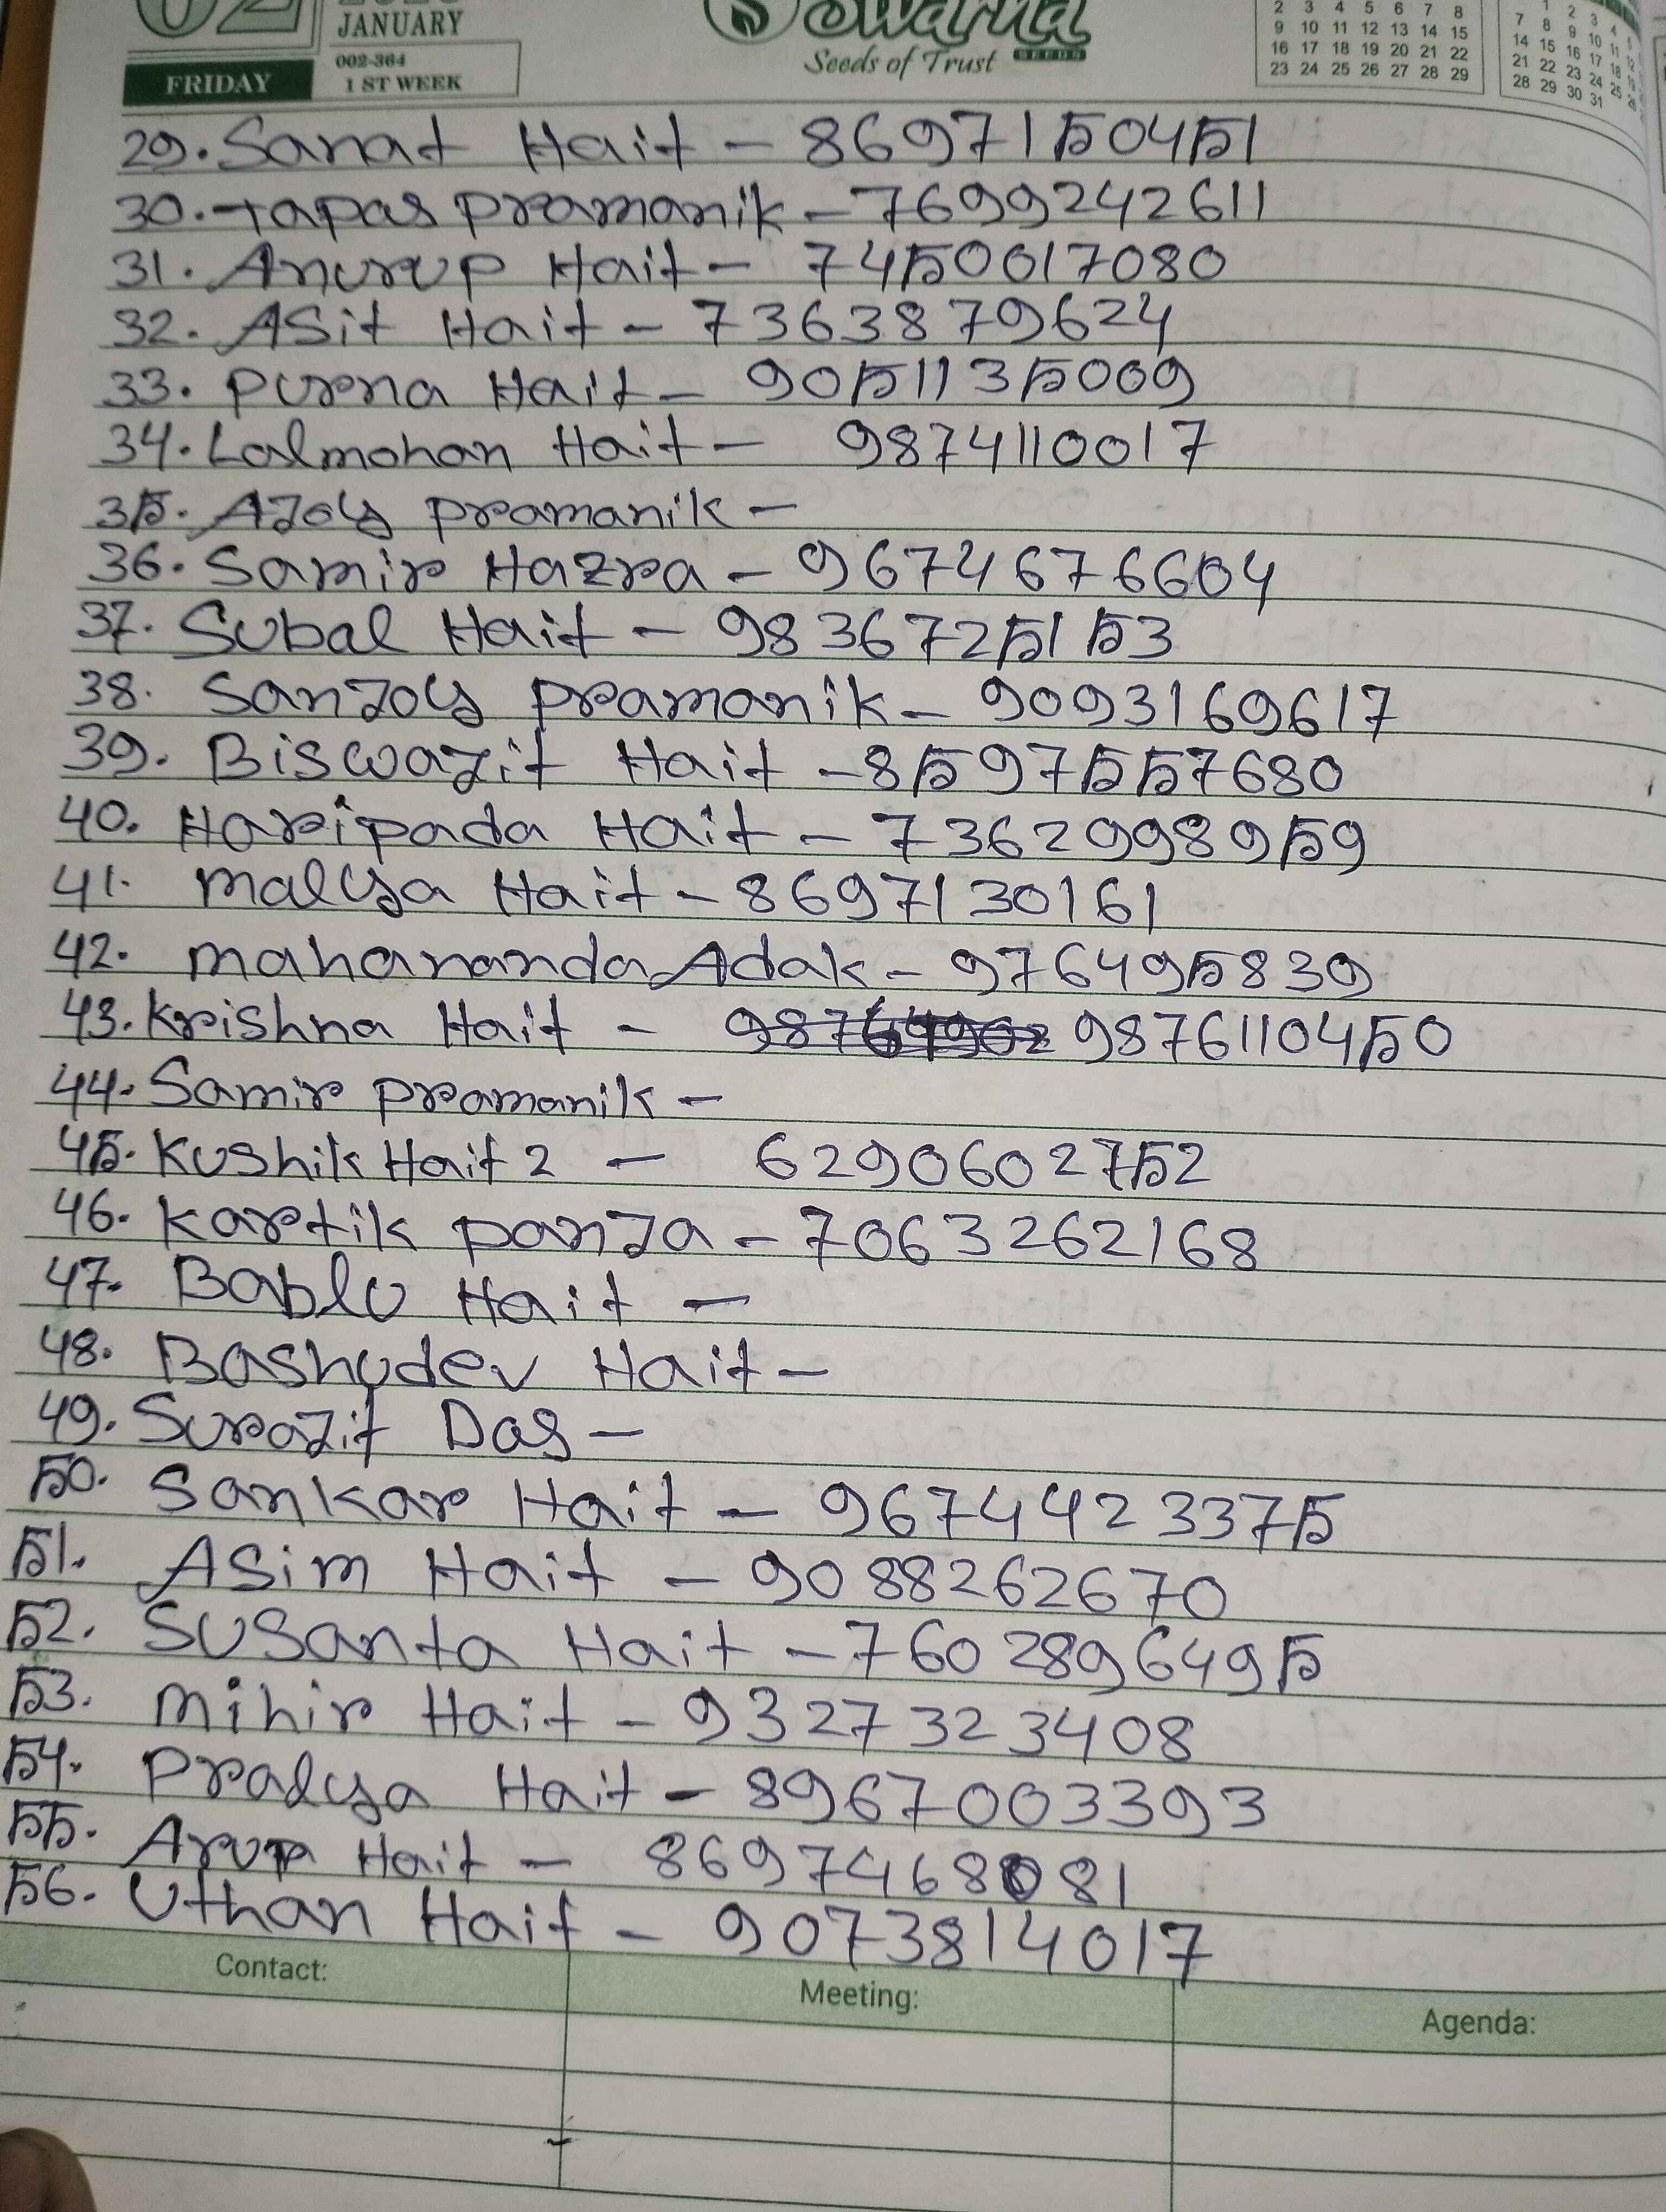 JANUARY
002-364
FRIDAY
1 ST WEEK
Swarna
Seeds of Trust
SEEDS
2 3 4 5 6 7 8
9 10 11 12 13 14 15
16 17 18 19 20 21 22
23 24 25 26 27 28 29
1 2 3 4 5
7 8 9 10 11 12
14 15 16 17 18 19
21 22 23 24 25 26
28 29 30 31
29. Sanat Hait - 8697150451
30. Tapas Pramanik - 7699242611
31. Anurup Hait - 7450017080
32. Asit Hait - 7363879624
33. Purna Hait - 9051135009
34. Lalmohan Hait - 9874110017
35. AJoy Pramanik -
36. Samir Hazra - 9674676604
37. Subal Hait - 9836725153
38. SanJoy Pramanik - 9093169617
39. Biswazit Hait - 8597557680
40. Haripada Hait - 7362998959
41. Malya Hait - 8697130161
42. Mahananda Adak - 9764995839
43. Krishna Hait - 9876110450
44. Samir Pramanik -
45. Kushik Hait 2 - 6290602752
46. Kartik PanJa - 7063262168
47. Bablu Hait -
48. Bashudev Hait -
49. Surazit Das -
50. Sankar Hait - 9674423375
51. Asim Hait - 9088262670
52. Susanta Hait - 7602896495
53. Mihir Hait - 9327323408
54. Pralya Hait - 8967003393
55. Arup Hait - 8697468081
56. Uthan Hait - 9073814017
Contact:
Meeting:
Agenda: